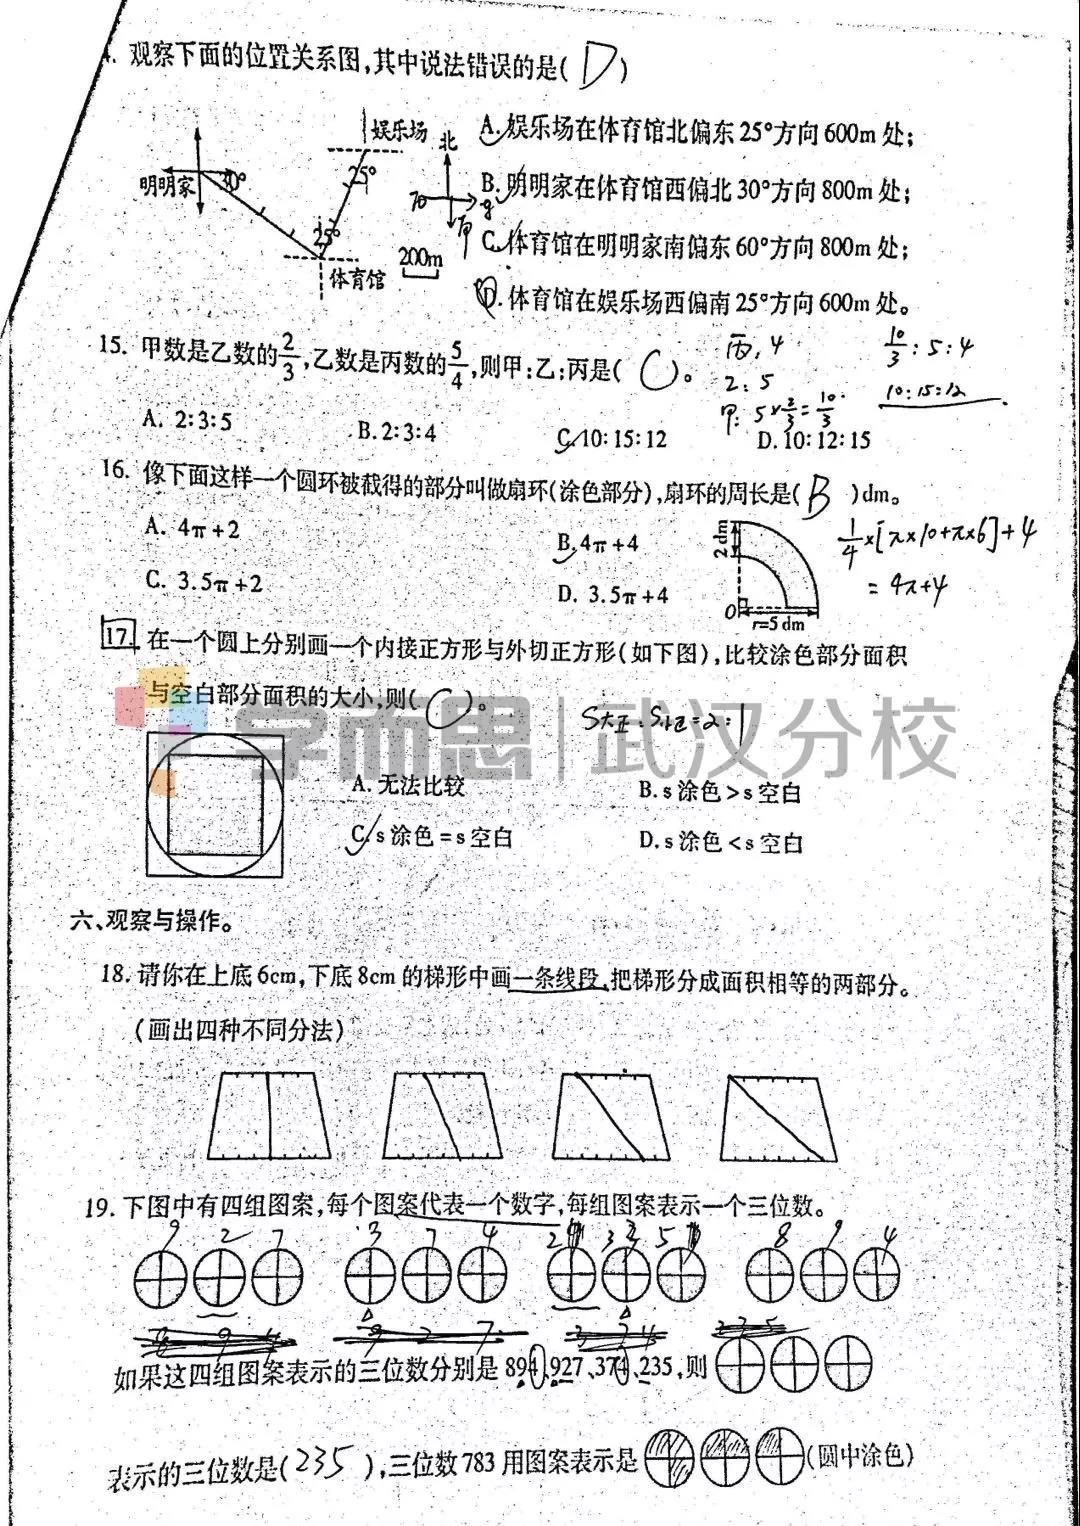 4. 观察下面的位置关系图,其中说法错误的是( D )
娱乐场
北
明明家
30°
25°
25°
体育馆
200m
A. 娱乐场在体育馆北偏东25°方向600m处;
B. 明明家在体育馆西偏北30°方向800m处;
C. 体育馆在明明家南偏东60°方向800m处;
D. 体育馆在娱乐场西偏南25°方向600m处。
15. 甲数是乙数的2/3,乙数是丙数的5/4,则甲:乙:丙是( C )。
丙, 4
2 : 5
甲: 5×2/3=10/3
10/3 : 5 : 4
10:15:12
A. 2:3:5
B. 2:3:4
C. 10:15:12
D. 10:12:15
16. 像下面这样一个圆环被截得的部分叫做扇环(涂色部分),扇环的周长是( B )dm。
A. 4π+2
B. 4π+4
C. 3.5π+2
D. 3.5π+4
2 dm
O
r=5 dm
1/4×[π×10+π×6]+4
= 4π+4
17. 在一个圆上分别画一个内接正方形与外切正方形(如下图),比较涂色部分面积
与空白部分面积的大小,则( C )。
S大正:S小正=2:1
学而思 武汉分校
A. 无法比较
B. s涂色>s空白
C. s涂色=s空白
D. s涂色<s空白
六、观察与操作。
18. 请你在上底6cm,下底8cm的梯形中画一条线段,把梯形分成面积相等的两部分。
(画出四种不同分法)
19. 下图中有四组图案,每个图案代表一个数字,每组图案表示一个三位数。
9 2 7 3 7 4 2 3 5 8 9 4
8 9 4 9 2 7 3 7 4 2 3 5
如果这四组图案表示的三位数分别是894、927、374、235,则
表示的三位数是( 235 ),三位数783用图案表示是 (圆中涂色)